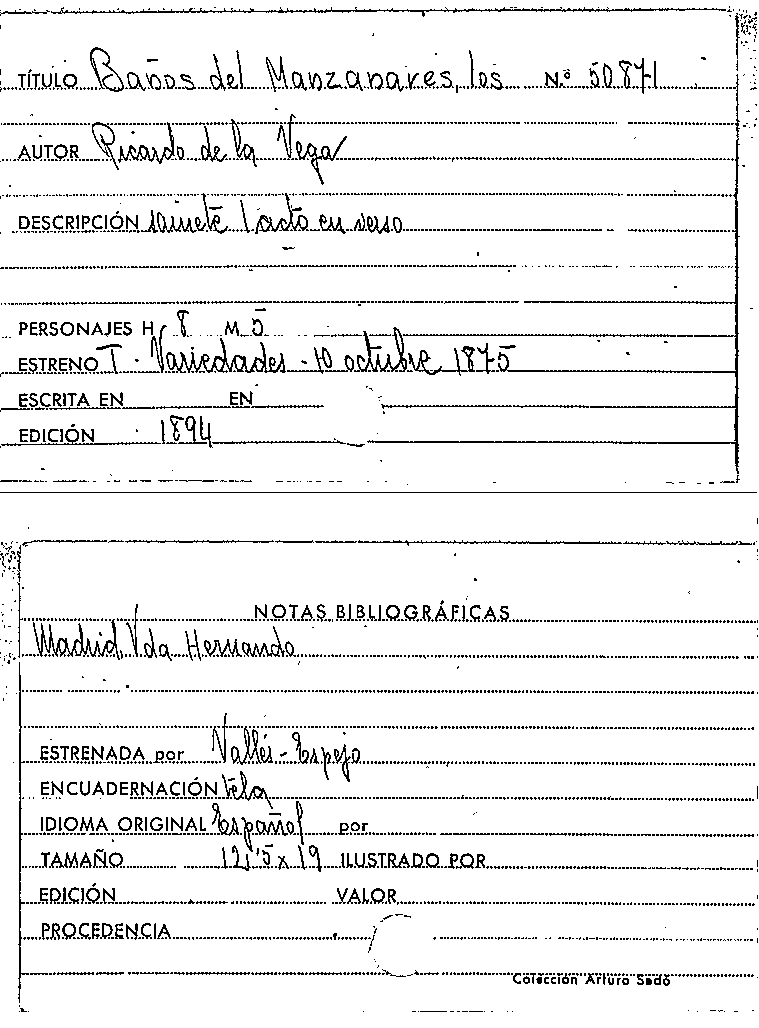 TÍTULO Baños del Manzanares, los N.º 50871
AUTOR Ricardo de la Vega
DESCRIPCIÓN sainete 1 acto en verso
PERSONAJES H. 8 M. 5
ESTRENO T. Variedades - 10 octubre 1875
ESCRITA EN EN
EDICIÓN 1894
NOTAS BIBLIOGRÁFICAS
Madrid, Vda Hernando
ESTRENADA por Vallés - Espejo
ENCUADERNACIÓN tela
IDIOMA ORIGINAL Español por
TAMAÑO 12'5 x 19 ILUSTRADO POR
EDICIÓN VALOR
PROCEDENCIA
Colección Arturo Sedó